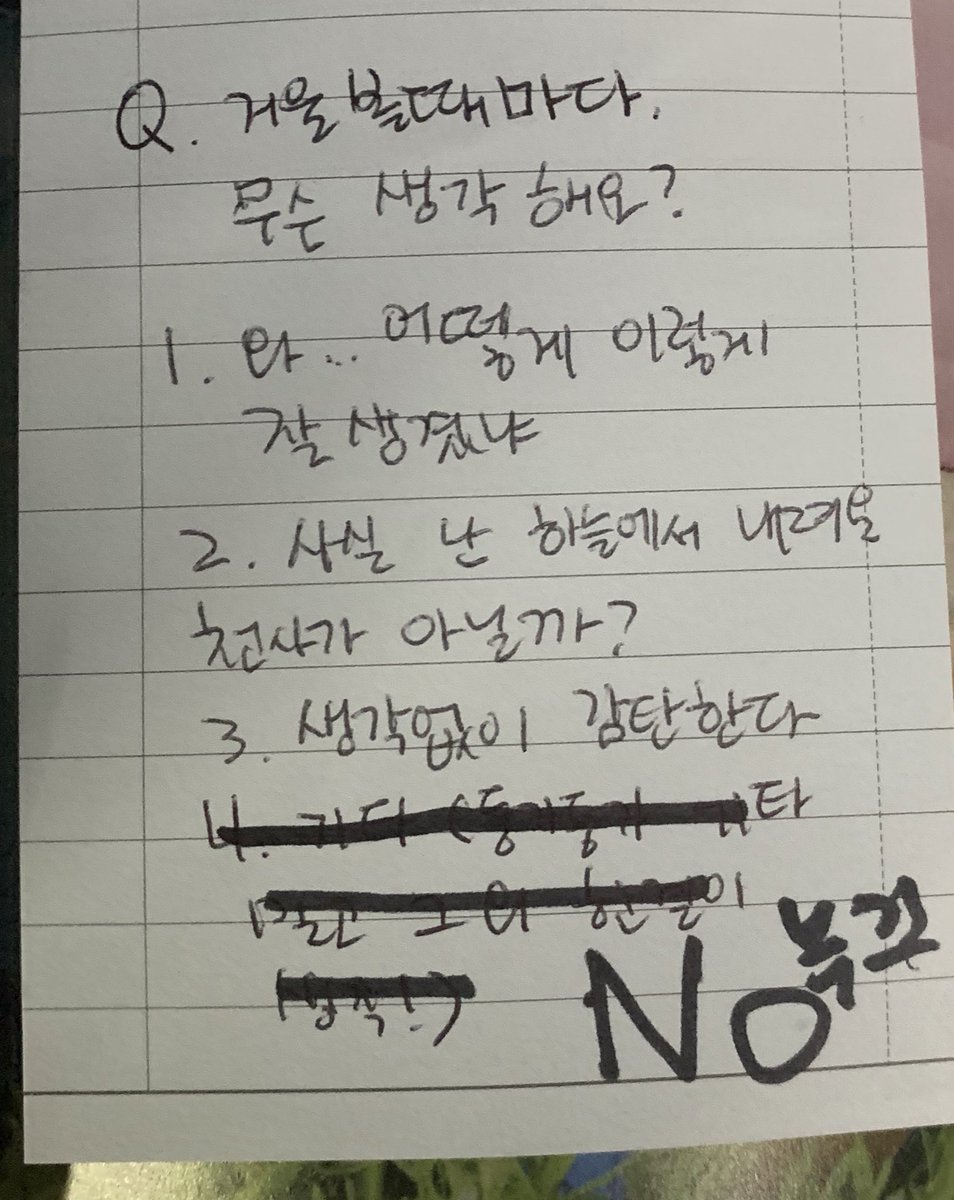 Q. 거울볼때마다.
무슨 생각해요?
1. 와... 어떻게 이렇게
잘생겼냐
2. 사실 난 하늘에서 내려온
천사가 아닐까?
3. 생각없이 감탄한다
4. 기타
NO